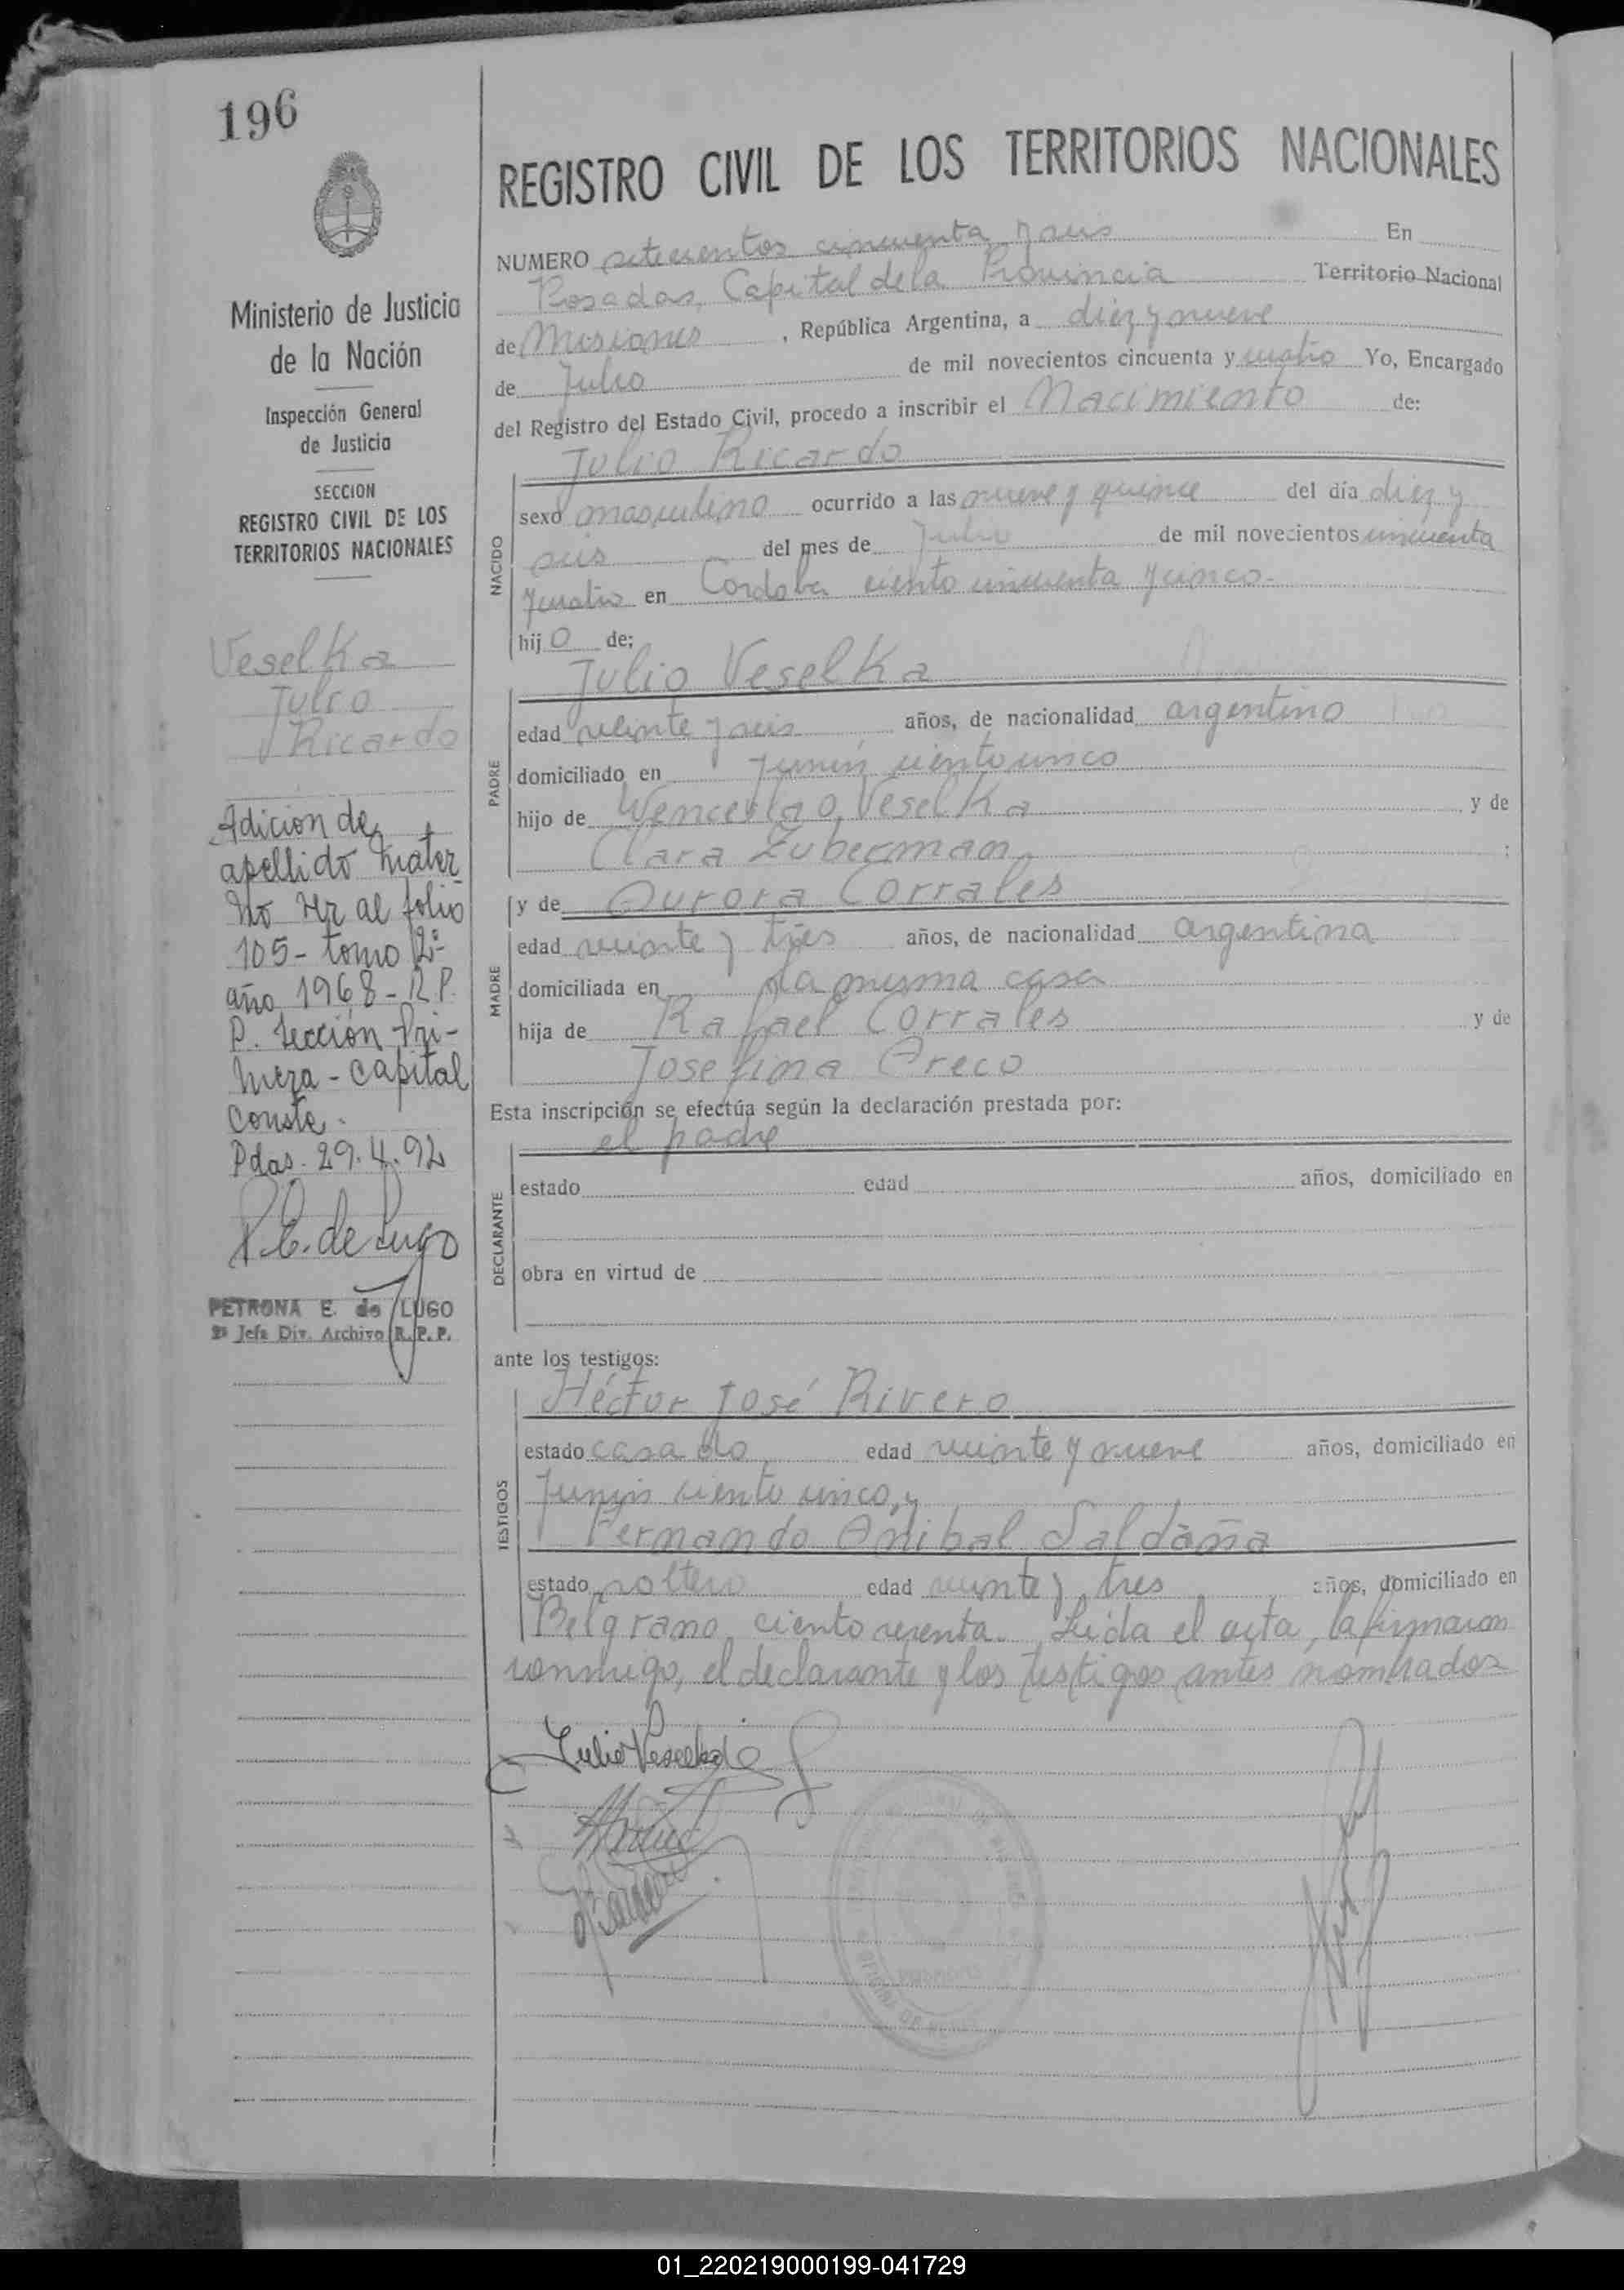 196
Ministerio de Justicia
de la Nación
Inspección General
de Justicia
SECCION
REGISTRO CIVIL DE LOS
TERRITORIOS NACIONALES
Veselka
Julio
Ricardo
Adicion de
apellido mater
no Ver al folio
105- tomo 2º-
año 1968- R.P.
P. Sección Pri-
mera - Capital
Conste.
Pdas. 29.4.92
P.E. de Lugo
PETRONA E. de LUGO
2ª Jefa Div. Archivo R.P.P.
REGISTRO CIVIL DE LOS TERRITORIOS NACIONALES
NUMERO setecientos cincuenta y seis En
Posadas, Capital de la Provincia Territorio Nacional
de Misiones, República Argentina, a diez y nueve
de Julio de mil novecientos cincuenta y cuatro Yo, Encargado
del Registro del Estado Civil, procedo a inscribir el Nacimiento de:
Julio Ricardo
NACIDO
sexo masculino ocurrido a las nueve y quince del día diez y
seis del mes de Julio de mil novecientos cincuenta
y cuatro en Cordoba ciento cincuenta y cinco.
hijo de:
Julio Veselka
PADRE
edad veinte y seis años, de nacionalidad argentino
domiciliado en Junin ciento cinco
hijo de Wenceslao Veselka y de
Clara Zuberman;
y de Aurora Corrales
MADRE
edad veinte y tres años, de nacionalidad argentina
domiciliada en la misma casa
hija de Rafael Corrales y de
Josefina Greco
Esta inscripción se efectúa según la declaración prestada por:
el padre
DECLARANTE
estado edad años, domiciliado en
obra en virtud de
ante los testigos:
Héctor José Rivero
TESTIGOS
estado casado edad veinte y nueve años, domiciliado en
Junin ciento cinco, y
Fernando Anibal Saldaña
estado soltero edad veinte y tres años, domiciliado en
Belgrano ciento sesenta. Leida el acta, la firmaron
conmigo, el declarante y los testigos antes nombrados
Julio Veselka
01_220219000199-041729